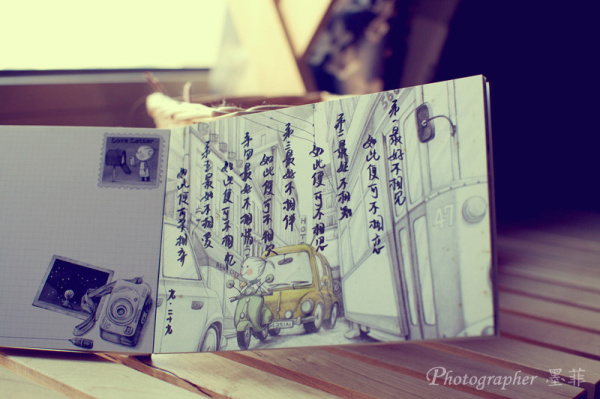 第一最好不相见
如此便可不相恋
第二最好不相知
如此便可不相思
第三最好不相伴
如此便可不相欠
第四最好不相惜
如此便可不相忆
第五最好不相爱
如此便可不相弃
Love Letter
47
Photographer 墨菲